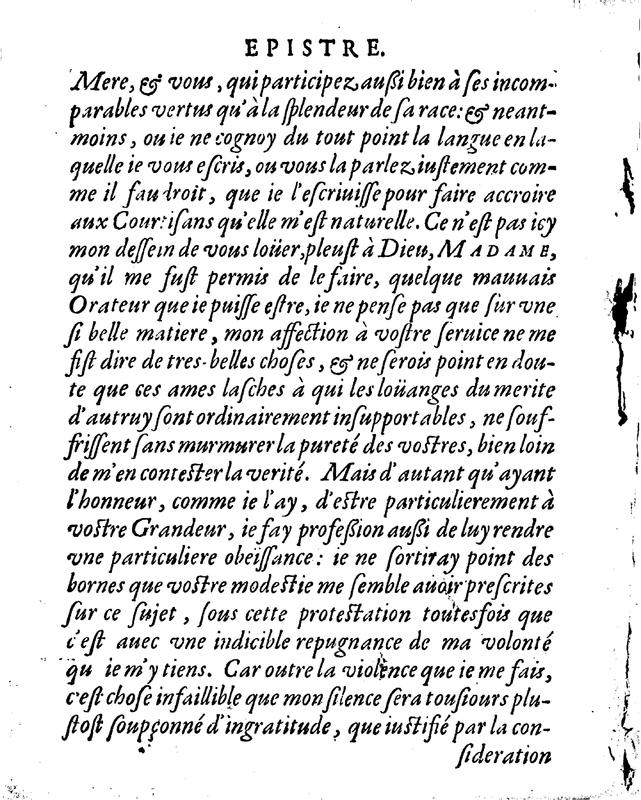 EPISTRE.
Mere, & vous, qui participez außi bien à ſes incom-
parables vertus qu'à la ſplendeur de ſa race: & neant-
moins, ou ie ne cognoy du tout point la langue en la-
quelle ie vous eſcris, ou vous la parlez iuſtement com-
me il faudroit, que ie l'eſcriuiſſe pour faire accroire
aux Courtiſans qu'elle m'eſt naturelle. Ce n'eſt pas icy
mon deſſein de vous loüer, pleuſt à Dieu, MADAME,
qu'il me fuſt permis de le faire, quelque mauuais
Orateur que ie puiſſe eſtre, ie ne penſe pas que ſur vne
ſi belle matiere, mon affection à voſtre ſeruice ne me
fiſt dire de tres-belles choſes, & ne ſerois point en dou-
te que ces ames laſches à qui les loüanges du merite
d'autruy ſont ordinairement inſupportables, ne ſouf-
friſſent ſans murmurer la pureté des voſtres, bien loin
de m'en conteſter la verité. Mais d'autant qu'ayant
l'honneur, comme ie l'ay, d'eſtre particulierement à
voſtre Grandeur, ie fay profeßion außi de luy rendre
vne particuliere obeïſſance: ie ne ſortiray point des
bornes que voſtre modeſtie me ſemble auoir preſcrites
ſur ce ſujet, ſous cette proteſtation toutesfois que
c'eſt auec vne indicible repugnance de ma volonté
qu ie m'y tiens. Car outre la violence que ie me fais,
c'eſt choſe infaillible que mon ſilence ſera touſiours plu-
ſtoſt ſoupçonné d'ingratitude, que iuſtifié par la con-
ſideration